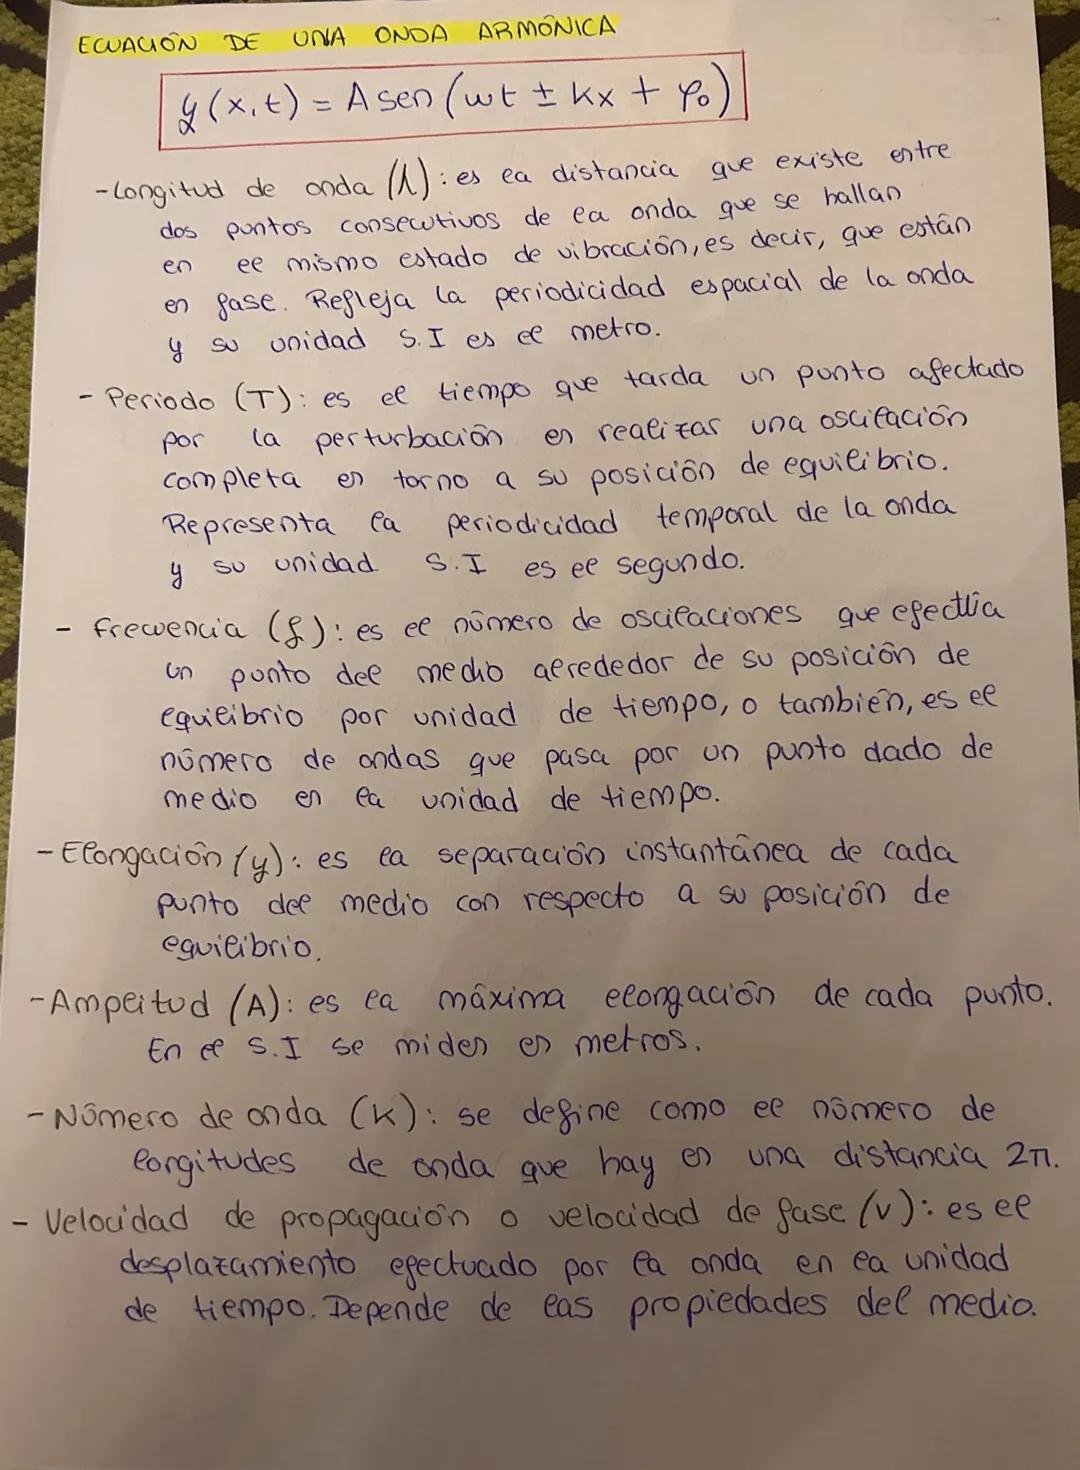 ECUACIÓN DE UNA ONDA ARMÓNICA
y(x,t) = A sen (ωt ± kx + φ₀)
- Longitud de onda (λ): es la distancia que existe entre
dos puntos consecutivos de la onda que se hallan
en el mismo estado de vibración, es decir, que están
en fase. Refleja la periodicidad espacial de la onda
y su unidad S.I es el metro.
- Periodo (T): es el tiempo que tarda un punto afectado
por la perturbación en realizar una oscilación
completa en torno a su posición de equilibrio.
Representa la periodicidad temporal de la onda
y su unidad S.I es el segundo.
- Frecuencia (f): es el número de oscilaciones que efectúa
un punto del medio alrededor de su posición de
equilibrio por unidad de tiempo, o también, es el
número de ondas que pasa por un punto dado de
medio en la unidad de tiempo.
- Elongación (y): es la separación instantánea de cada
punto del medio con respecto a su posición de
equilibrio.
- Amplitud (A): es la máxima elongación de cada punto.
En el S.I se miden en metros.
- Número de onda (K): se define como el número de
longitudes de onda que hay en una distancia 2π.
- Velocidad de propagación o velocidad de fase (v): es el
desplazamiento efectuado por la onda en la unidad
de tiempo. Depende de las propiedades del medio.